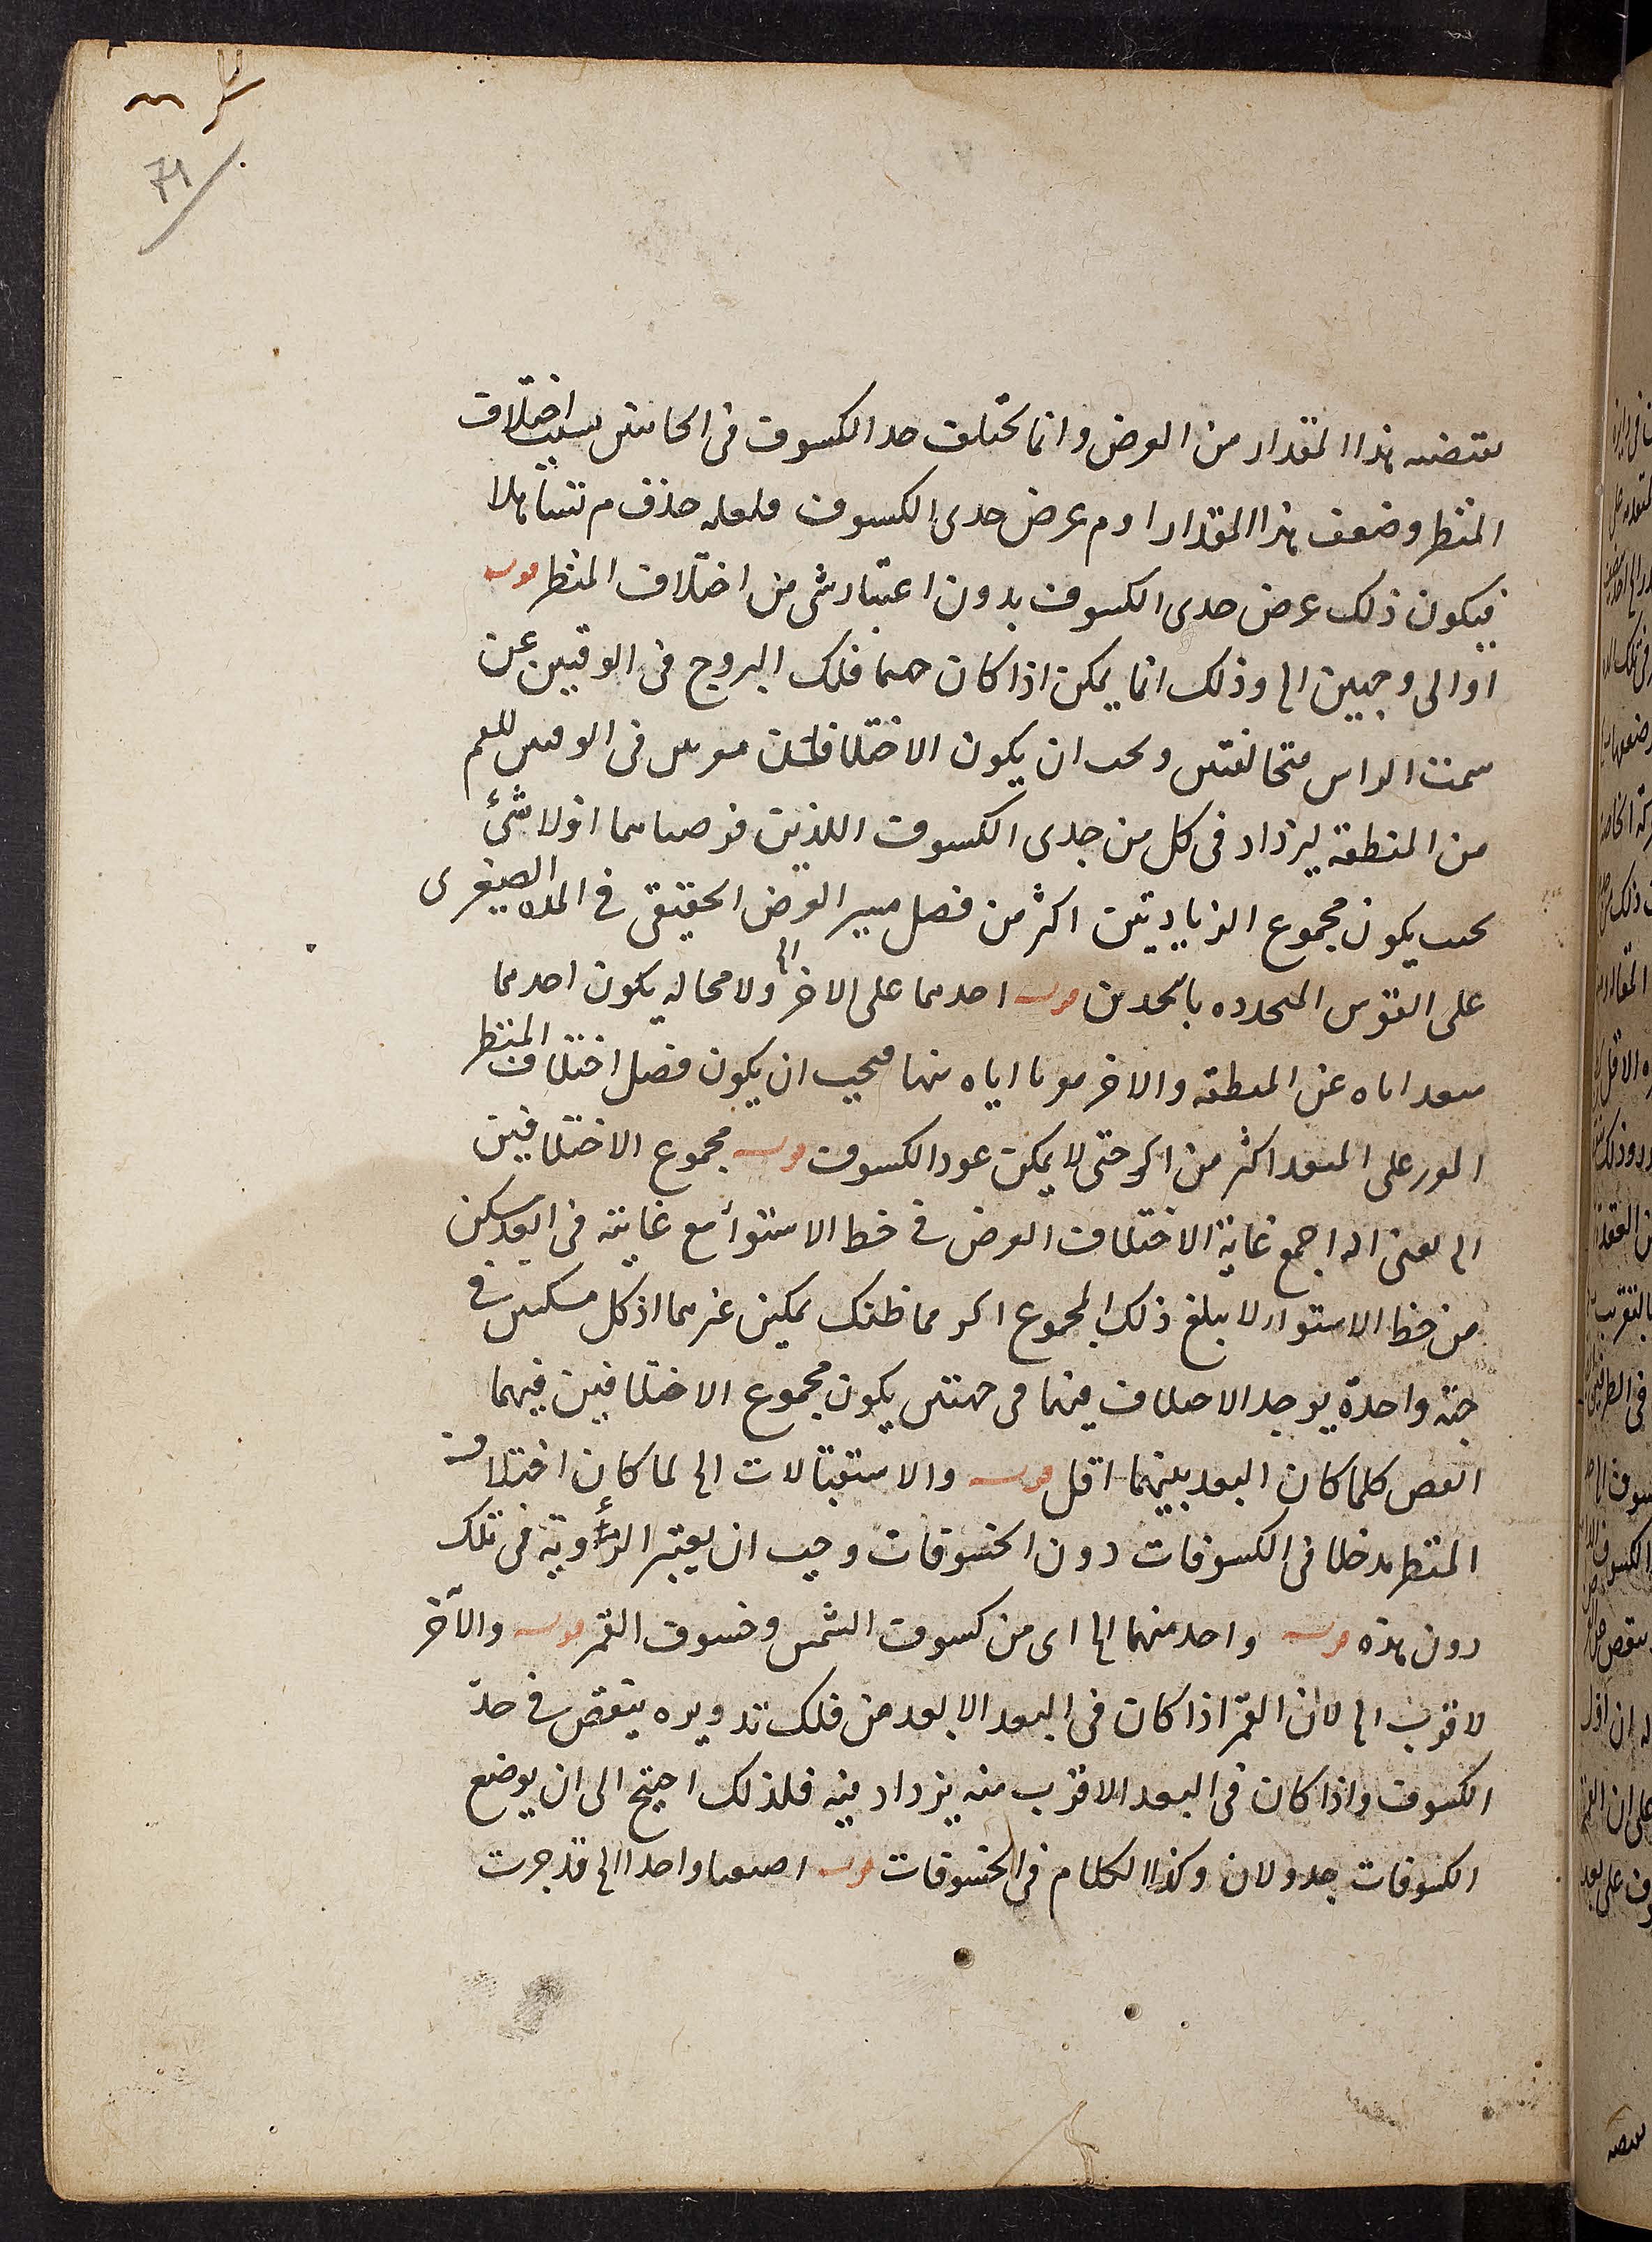 71
يقتضيه هذا المقدار من العرض وانما يختلف حد الكسوف فى الجانبين بسبب اختلاف
المنظر وضعف هذا المقدار ا و م عرض حدى الكسوف فلعله حذف م تساهلا
فيكون ذلك عرض حدى الكسوف بدون اعتبار شى من اختلاف المنظر قوله
او الى وجهين الخ وذلك انما يمكن اذا كان جهتا فلك البروج فى الوقتين عن
سمت الراس متخالفتين ويجب ان يكون الاختلافان فى الوقتين للقمر
من المنطقة ليزداد فى كل من حدى الكسوف اللذين فرضناهما اولا شئ
بحيث يكون مجموع الزيادتين اكثر من فضل مسير العرض الحقيقى فى المدة الصغرى
على القوس المحدده بالحدين قوله احدهما على الاخر الخ ولا محاله يكون احدهما
مبعدا اياه عن المنطقه والاخر مقربا اياه منها فيجب ان يكون فضل اختلاف المنظر
المقرر على المبعد اكثر من حتى لا يمكن عود الكسوف قوله مجموع الاختلافين
الخ يعنى انه اجمع غاية الاختلاف العرض فى خط الاستوأ مع غايته فى ابعد مسكن
من خط الاستواء لا يبلغ ذلك المجموع فما ظنك بمسكنين غيرهما اذ كل مسكنين فى
جهة واحدة يوجد الاختلاف فيهما فى جهتين يكون مجموع الاختلافين فيهما
انقص كلما كان البعد بينهما اقل قوله والاستقبالات الخ لما كان اختلاف
المنظر مدخلا فى الكسوفات دون الخسوفات وجب ان يعتبر الرؤية فى تلك
دون هذه قوله واحد منهما الخ اى من كسوف الشمس وخسوف القمر قوله والآخر
لاقرب الخ لان القمر اذا كان فى البعد الابعد من فلك تدويره ينقص فى حدّ
الكسوف واذا كان فى البعد الاقرب منه يزداد فيه فلذلك احتيج الى ان يوضع
الكسوفات جدولان وكذا الكلام فى الخسوفات قوله اصبعا واحدا الخ قد جرت